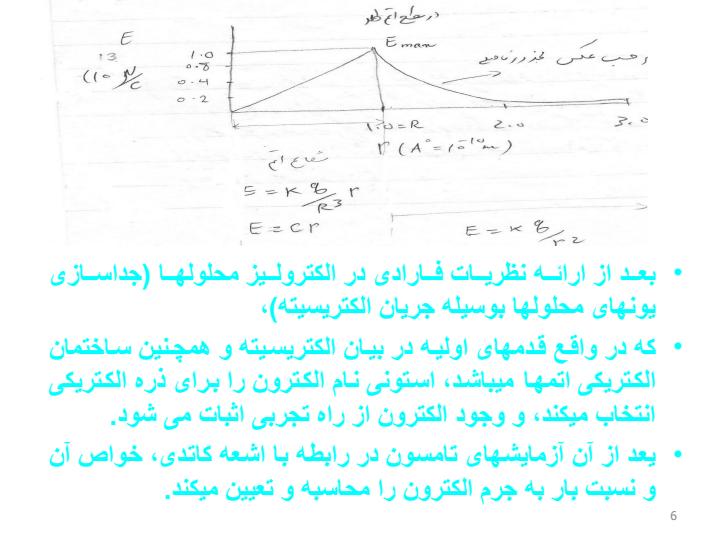 در سطح اتم
E
E max
13
(10 N/C
1.0
0.8
0.4
0.2
1.0=R
2.0
3.0
r (A°=10⁻¹⁰m)
شعاع اتم
E = K q/R³ r
E = cr
E = K q/r²
• بعد از ارائه نظریات فارادی در الکترولیز محلولها (جداسازی
یونهای محلولها بوسیله جریان الکتریسیته)،
• که در واقع قدمهای اولیه در بیان الکتریسیته و همچنین ساختمان
الکتریکی اتمها میباشد، استونی نام الکترون را برای ذره الکتریکی
انتخاب میکند، و وجود الکترون از راه تجربی اثبات می شود.
• یعد از آن آزمایشهای تامسون در رابطه با اشعه کاتدی، خواص آن
و نسبت بار به جرم الکترون را محاسبه و تعیین میکند.
6